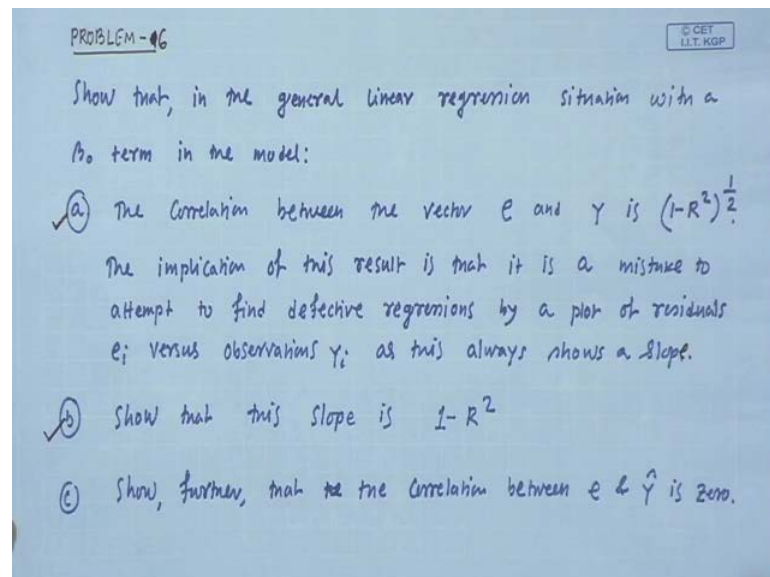 PROBLEM-16
© CET
I.I.T. KGP
Show that, in the general linear regression situation with a
β₀ term in the model:
(a) The Correlation between the vector e and Y is (1-R²)^½.
The implication of this result is that it is a mistake to
attempt to find defective regressions by a plot of residuals
eᵢ versus observations Yᵢ as this always shows a slope.
(b) Show that this slope is 1-R²
(c) Show, further, that the correlation between e & Ŷ is zero.